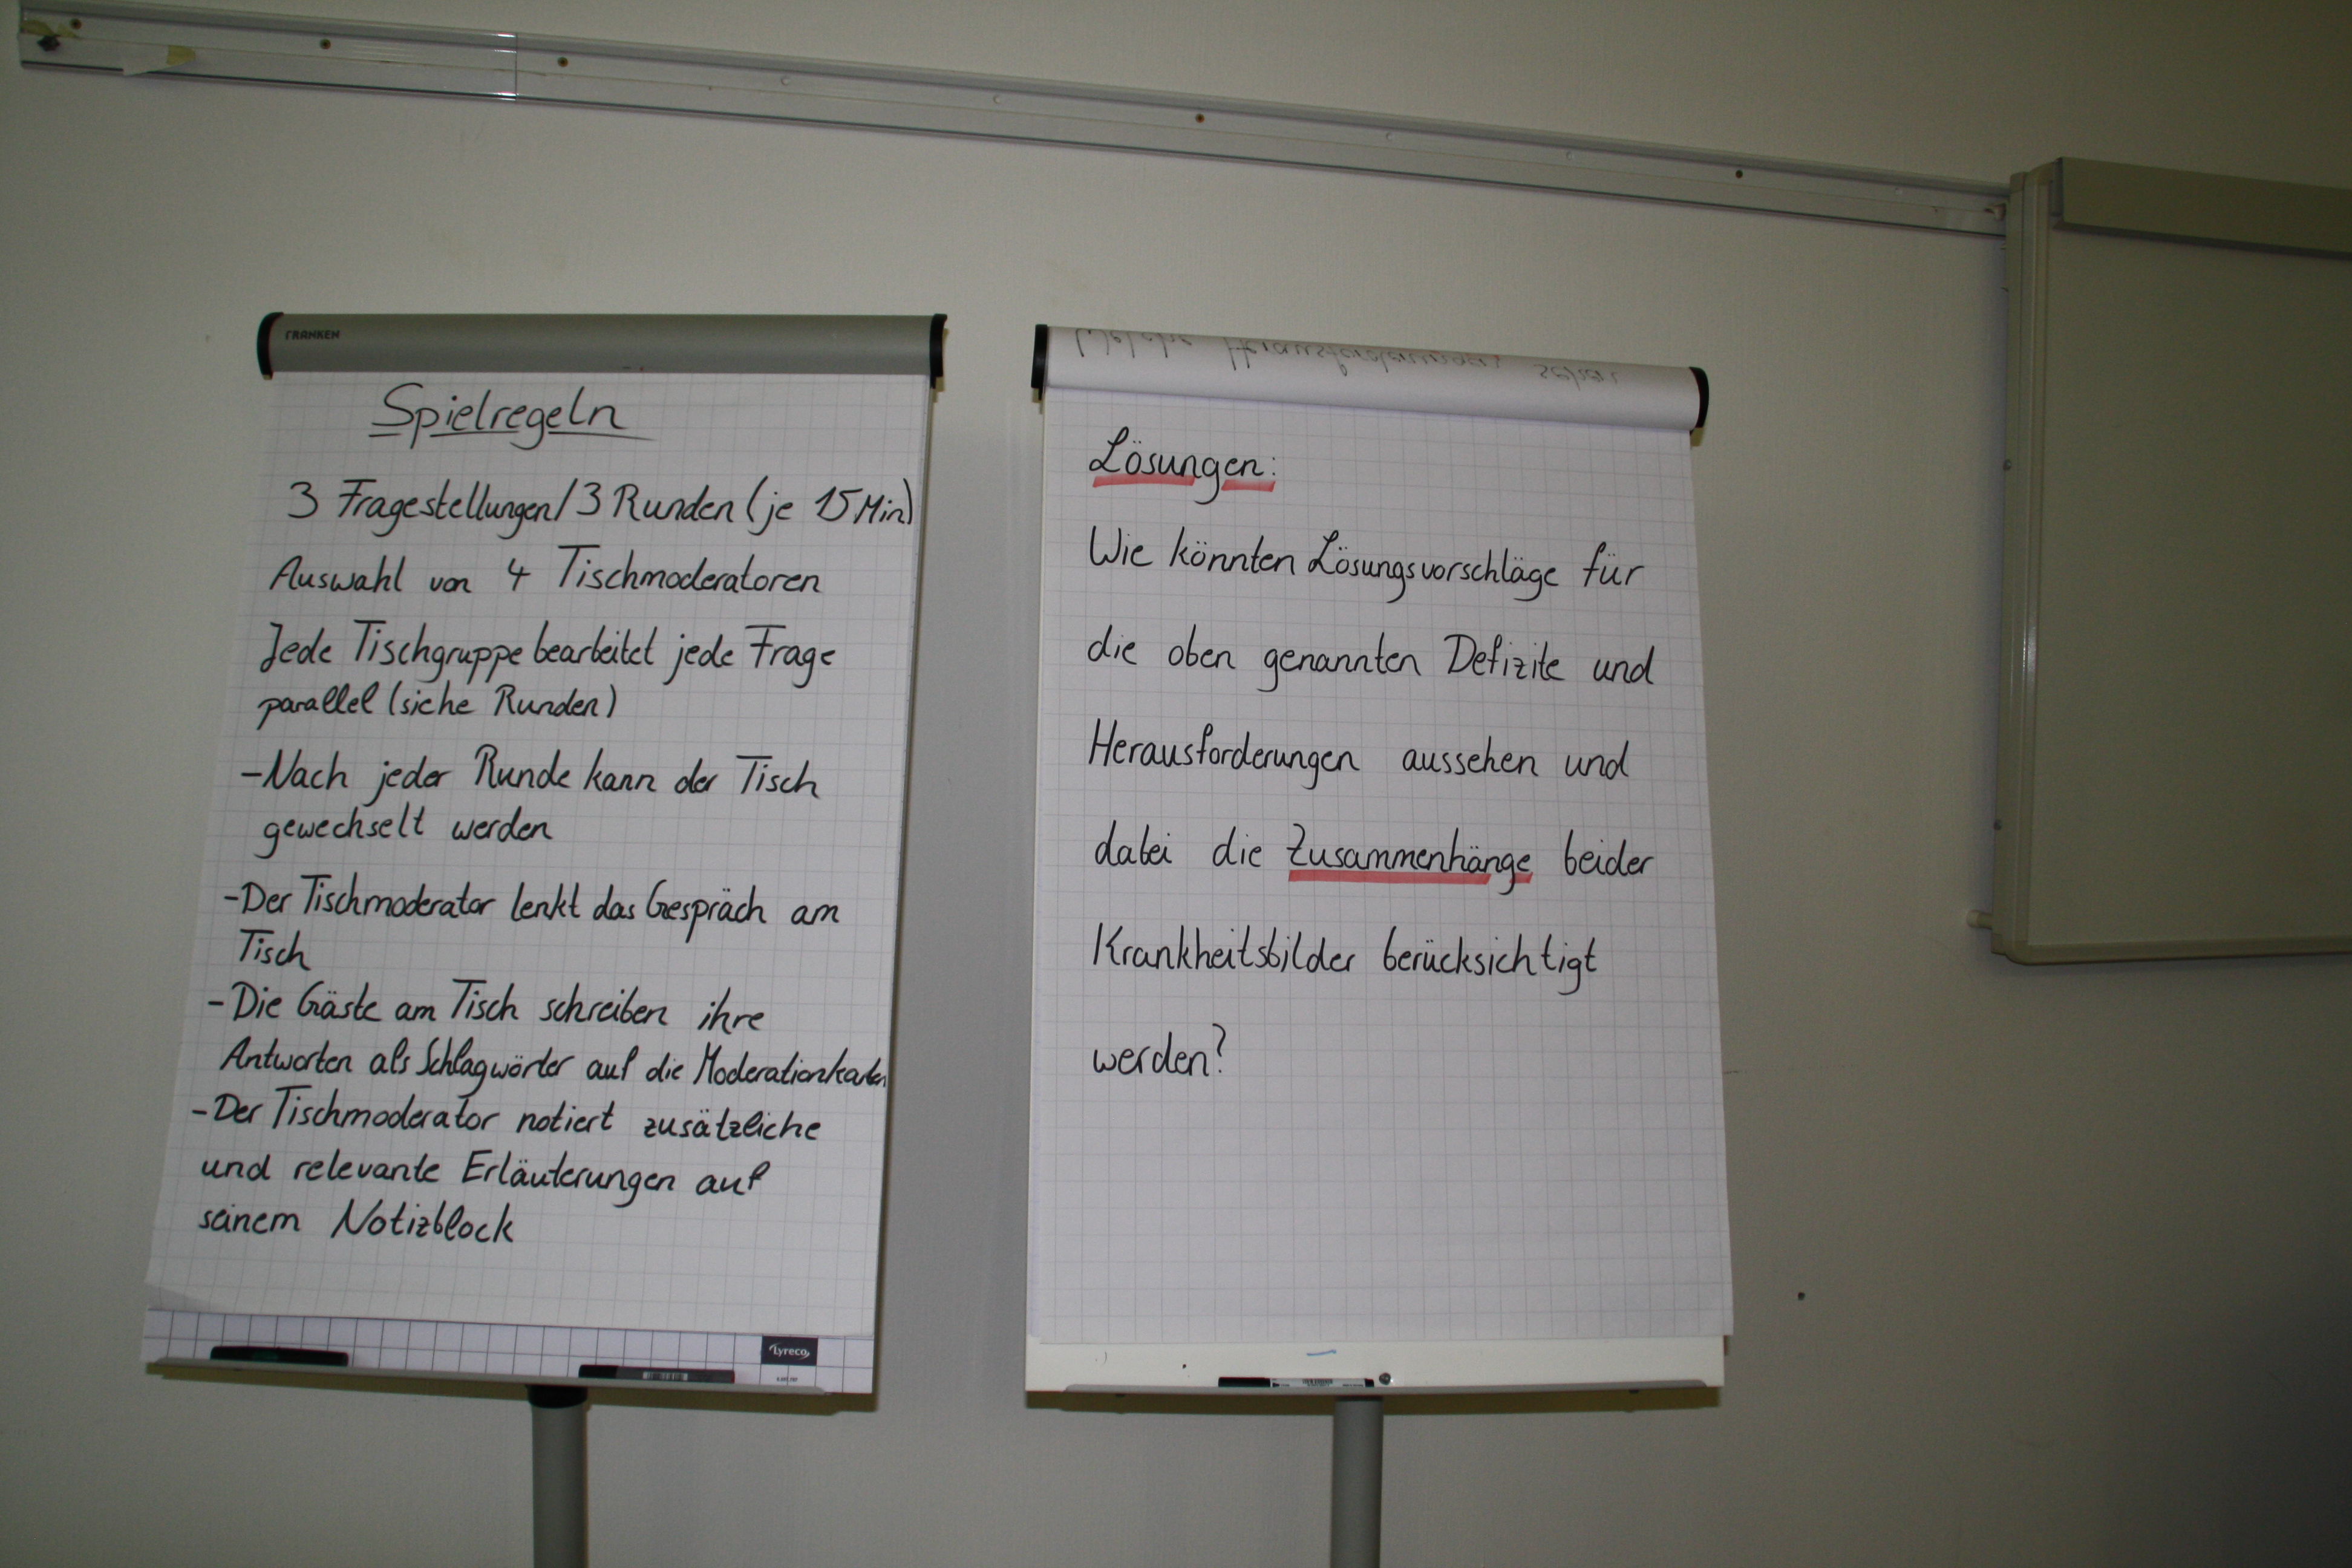 FRANKEN
Spielregeln
3 Fragestellungen/3 Runden (je 15 Min)
Auswahl von 4 Tischmoderatoren
Jede Tischgruppe bearbeitet jede Frage
parallel (siehe Runden)
-Nach jeder Runde kann der Tisch
gewechselt werden
-Der Tischmoderator lenkt das Gespräch am
Tisch
-Die Gäste am Tisch schreiben ihre
Antworten als Schlagwörter auf die Moderationkarten
-Der Tischmoderator notiert zusätzliche
und relevante Erläuterungen auf
seinem Notizblock
Lyreco
Welche Herausforderungen sehen
Lösungen:
Wie könnten Lösungsvorschläge für
die oben genannten Defizite und
Herausforderungen aussehen und
dabei die Zusammenhänge beider
Krankheitsbilder berücksichtigt
werden?